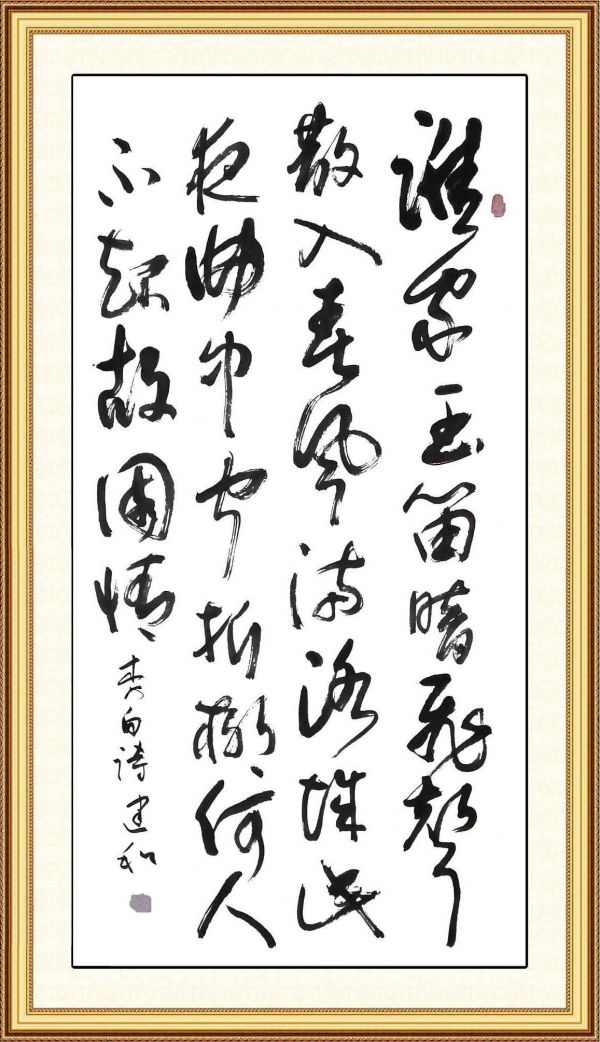 誰家玉笛暗飛聲
散入春風滿洛城此
夜曲中聞折柳何人
不起故園情 李白詩建和